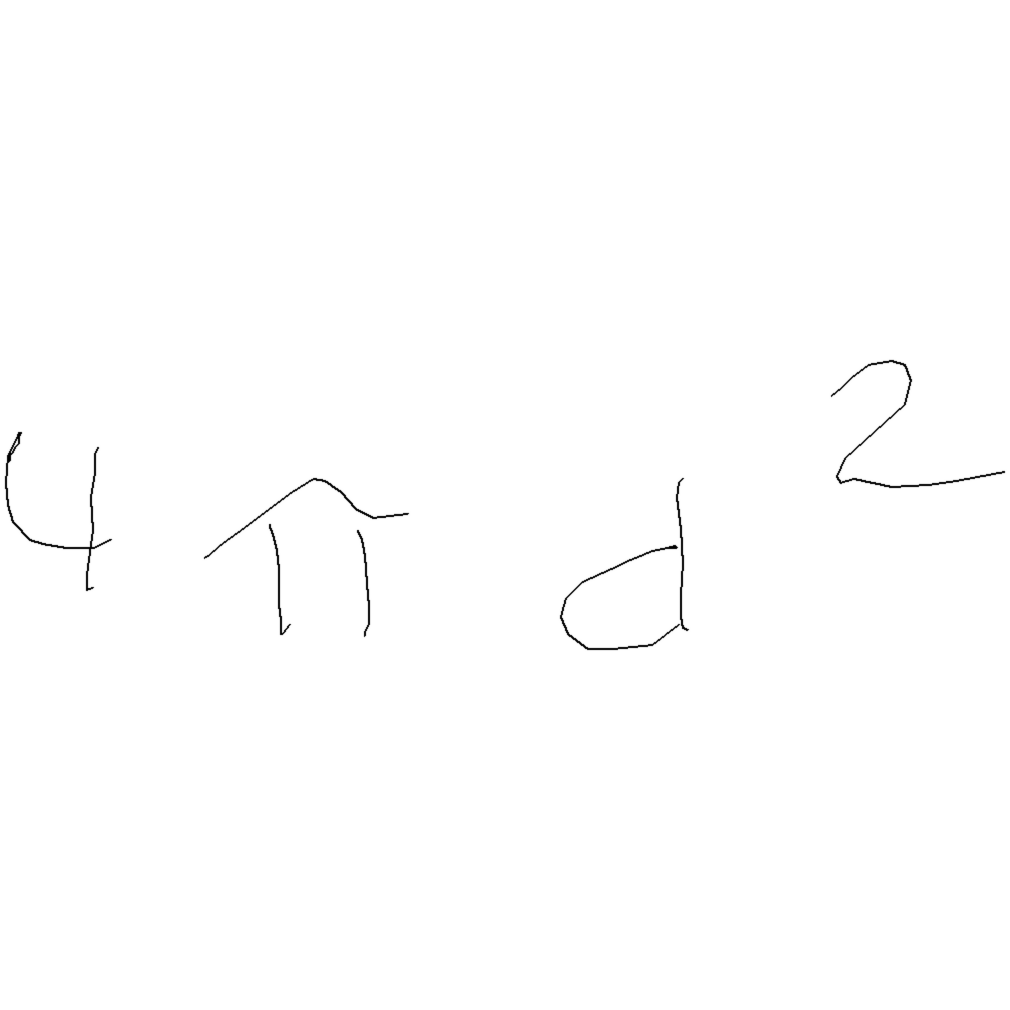 4πd²